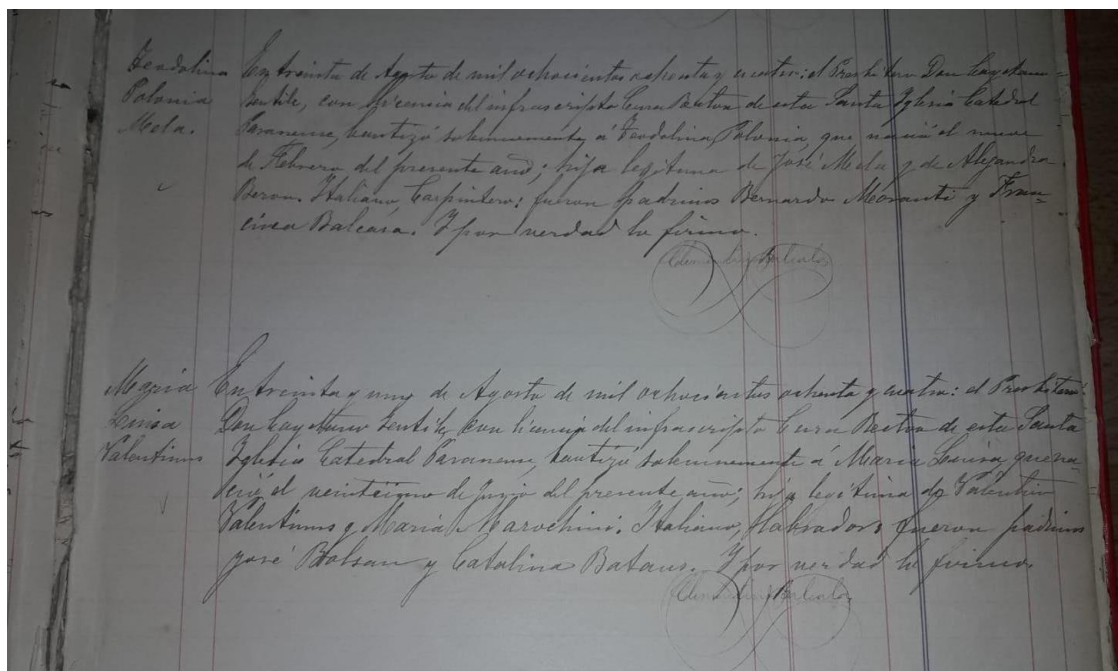 Teodolina
Polonia
Mela.
En treinta de Agosto de mil ochocientos ochenta y cuatro: el Presbitero Don Cayetano
Gentile, con licencia del infrascripto Cura Rector de esta Santa Iglesia Catedral
Paranense, bautizó solemnemente á Teodolina Polonia, que nació el nueve
de Febrero del presente año; hija legitima de José Mela y de Alejandra
Beron. Italiano, Carpintero: fueron padrinos Bernardo Moranti y Fran=
cisca Balcara. Y por verdad lo firmo.
Maria
Luisa
Valentinus
En treinta y uno de Agosto de mil ochocientos ochenta y cuatro: el Presbitero
Don Cayetano Gentile, con licencia del infrascripto Cura Rector de esta Santa
Iglesia Catedral Paranense, bautizó solemnemente á Maria Luisa, que na=
ció el veintiuno de del presente año; hija legitima de Valentin
Valentinus y Maria Marochini. Italiano, Labrador: fueron padrinos
José Bolsan y Catalina Bataus. Y por verdad lo firmo.